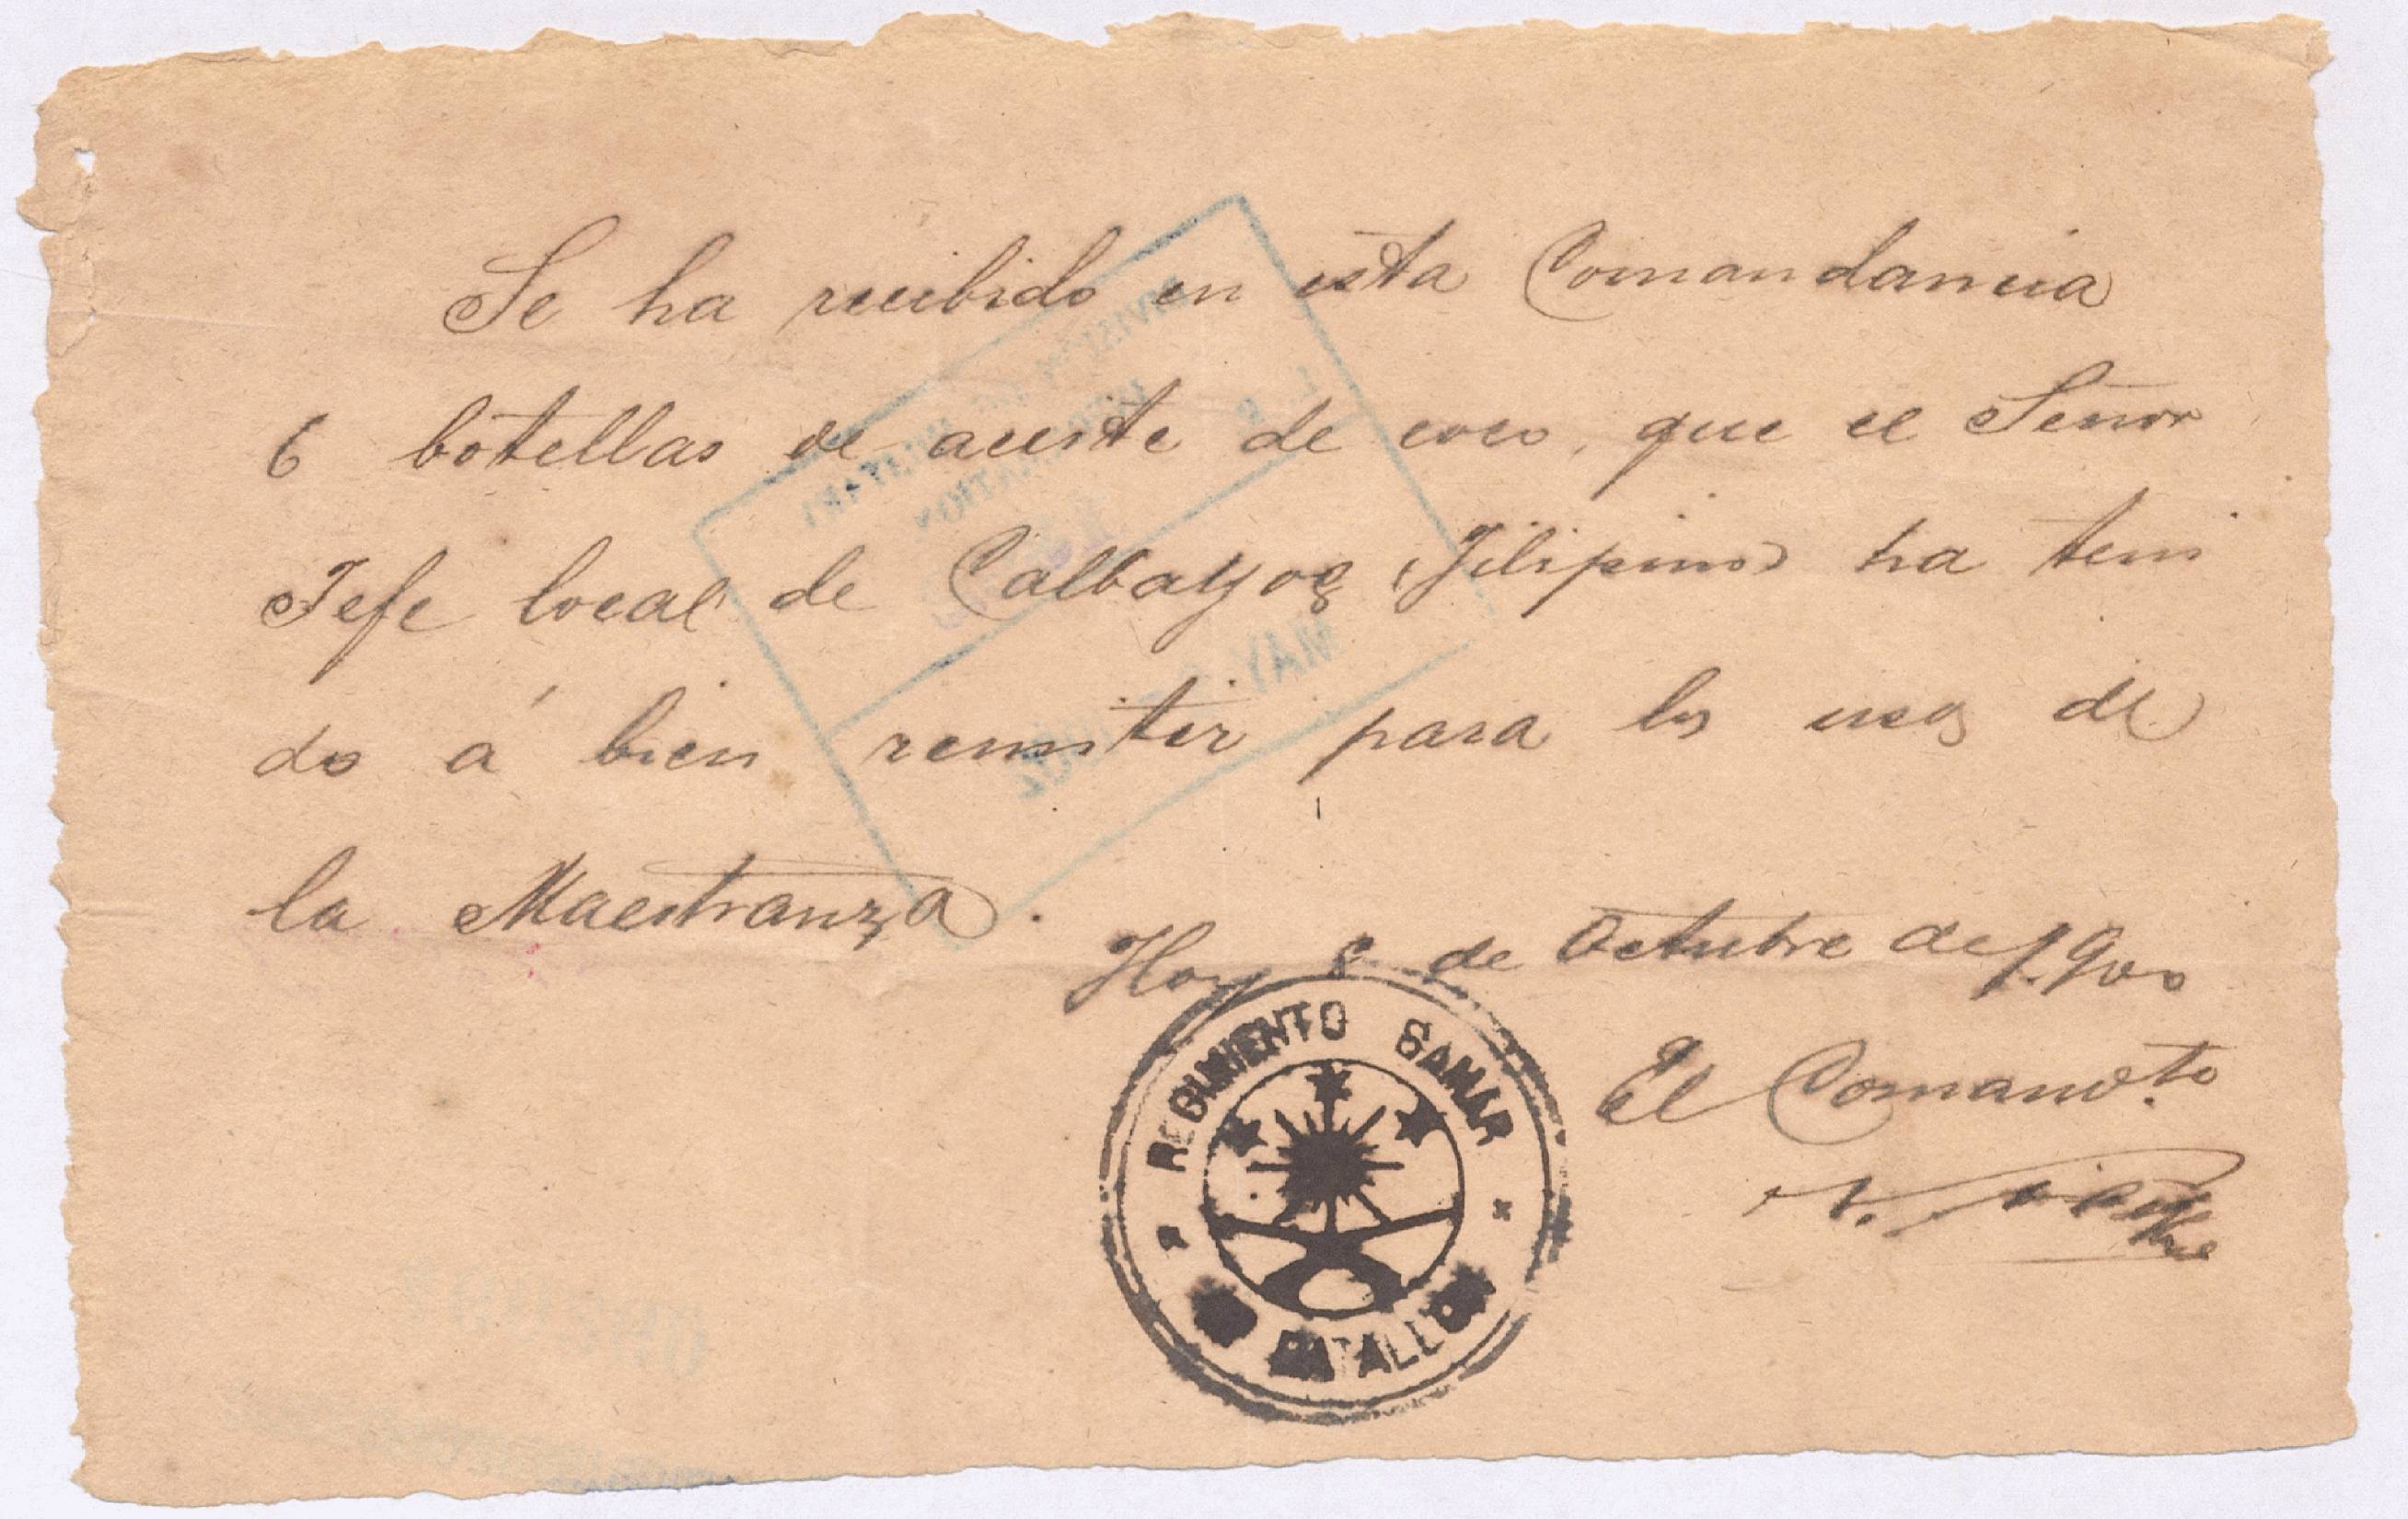 Se ha recibido en esta Comandancia
6 botellas de aceite de coco, que el Señor
Jefe local de Calbayog (Filipino) ha teni
do á bien remitir para los usos de
la Maestranza.
Hoy 8 de Octubre de 1.900
El Comandte
REGIMIENTO SAMAR
BATALLON
MAY